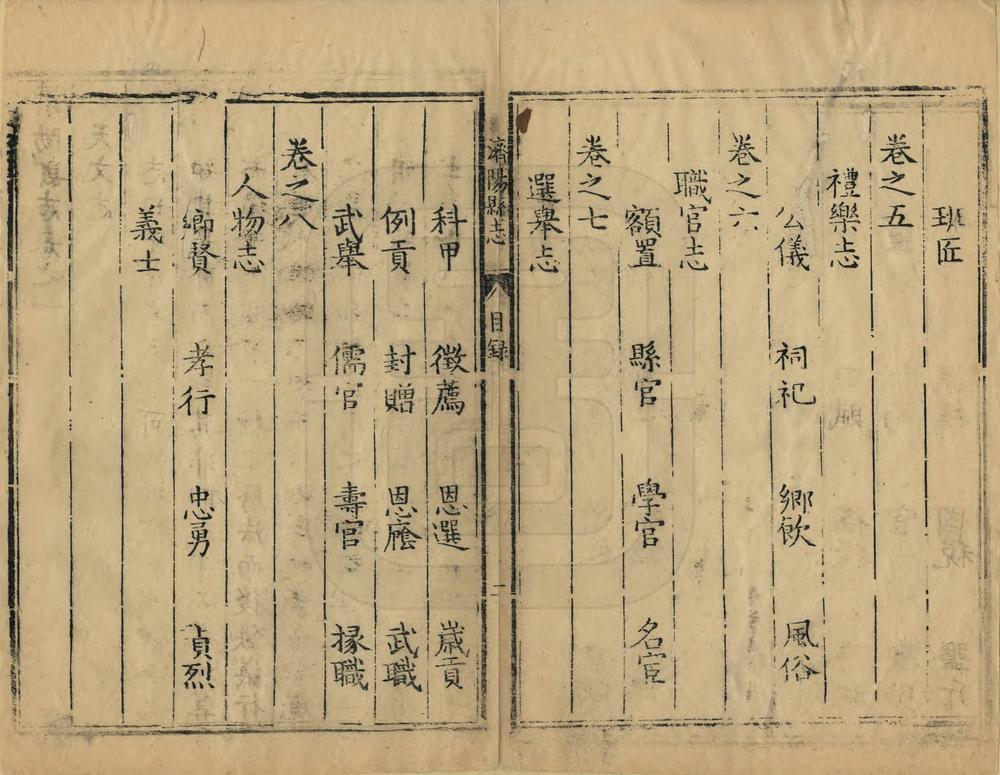 班匠
卷之五
禮樂志
公儀 祠祀 鄉飲 風俗
卷之六
職官志
額置 縣官 學官 名宦
卷之七
選舉志
濟陽縣志 目録 二
科甲 徵薦 恩選 歲貢
例貢 封贈 恩廕 武職
武舉 儒官 壽官 掾職
卷之八
人物志
鄉賢 孝行 忠勇 貞烈
義士